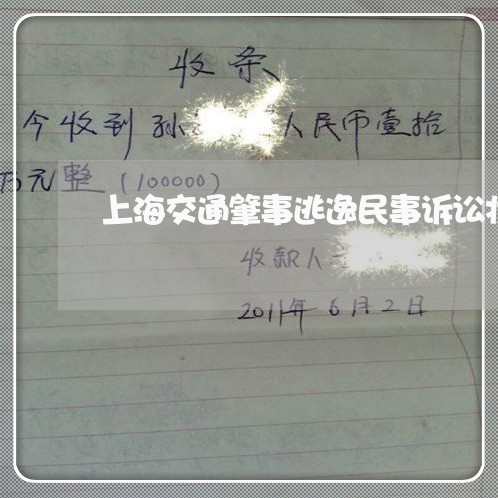 收条
今收到孙 人民币壹拾
万元整(100000)
上海交通肇事逃逸民事诉讼
收款人
2011年6月2日